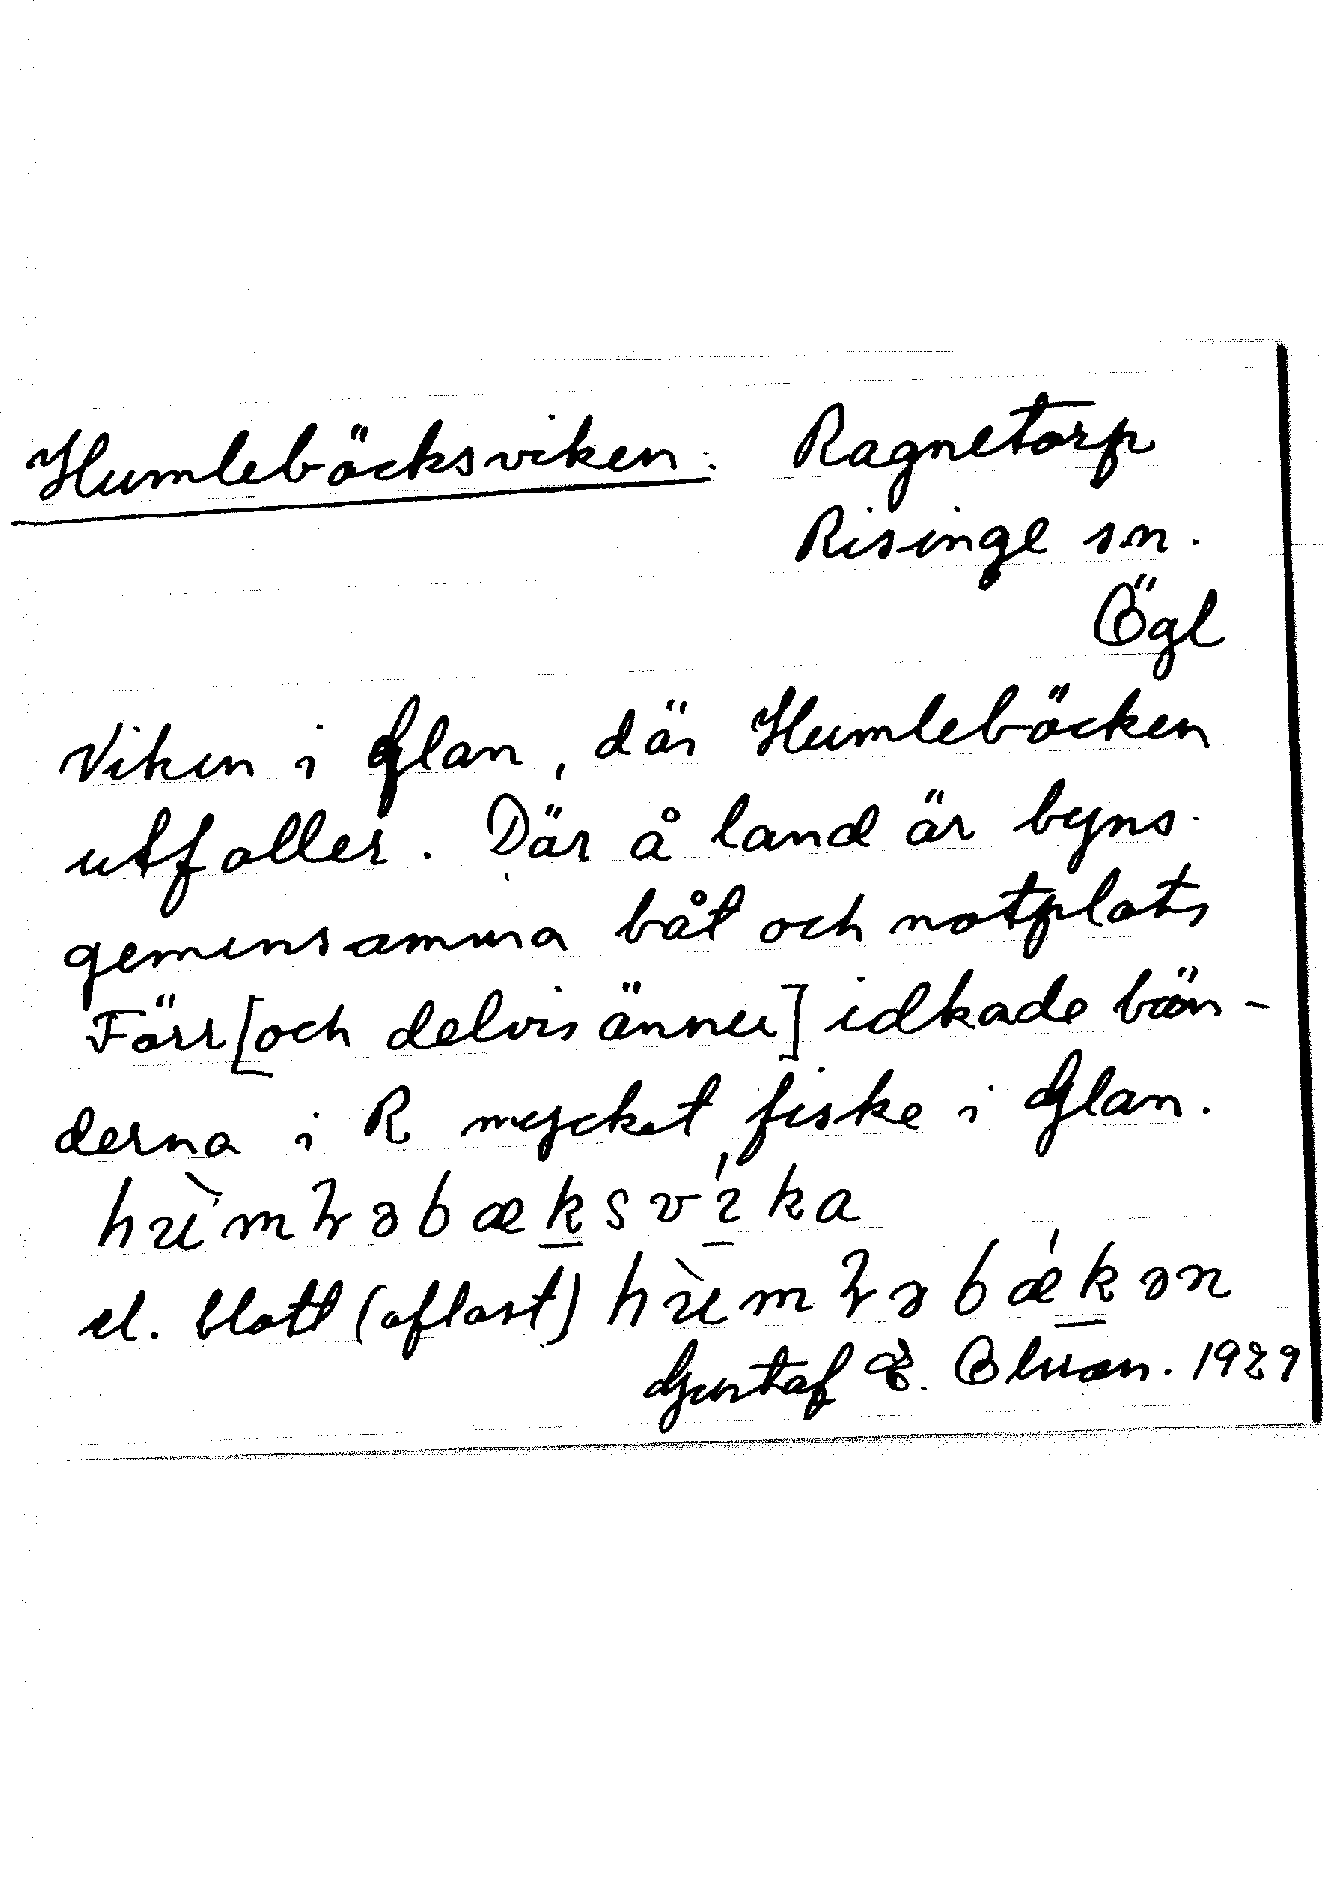 Humlebäcksviken. Ragnetorp
Risinge sn.
Ögl
Viken i Glan, där Humlebäcken
utfaller. Där å land är byns
gemensamma båt och notplats
Förr [och delvis ännu] idkade bön-
derna i R mycket fiske i Glan.
el. blott (oftast)
Gustaf E. 1929